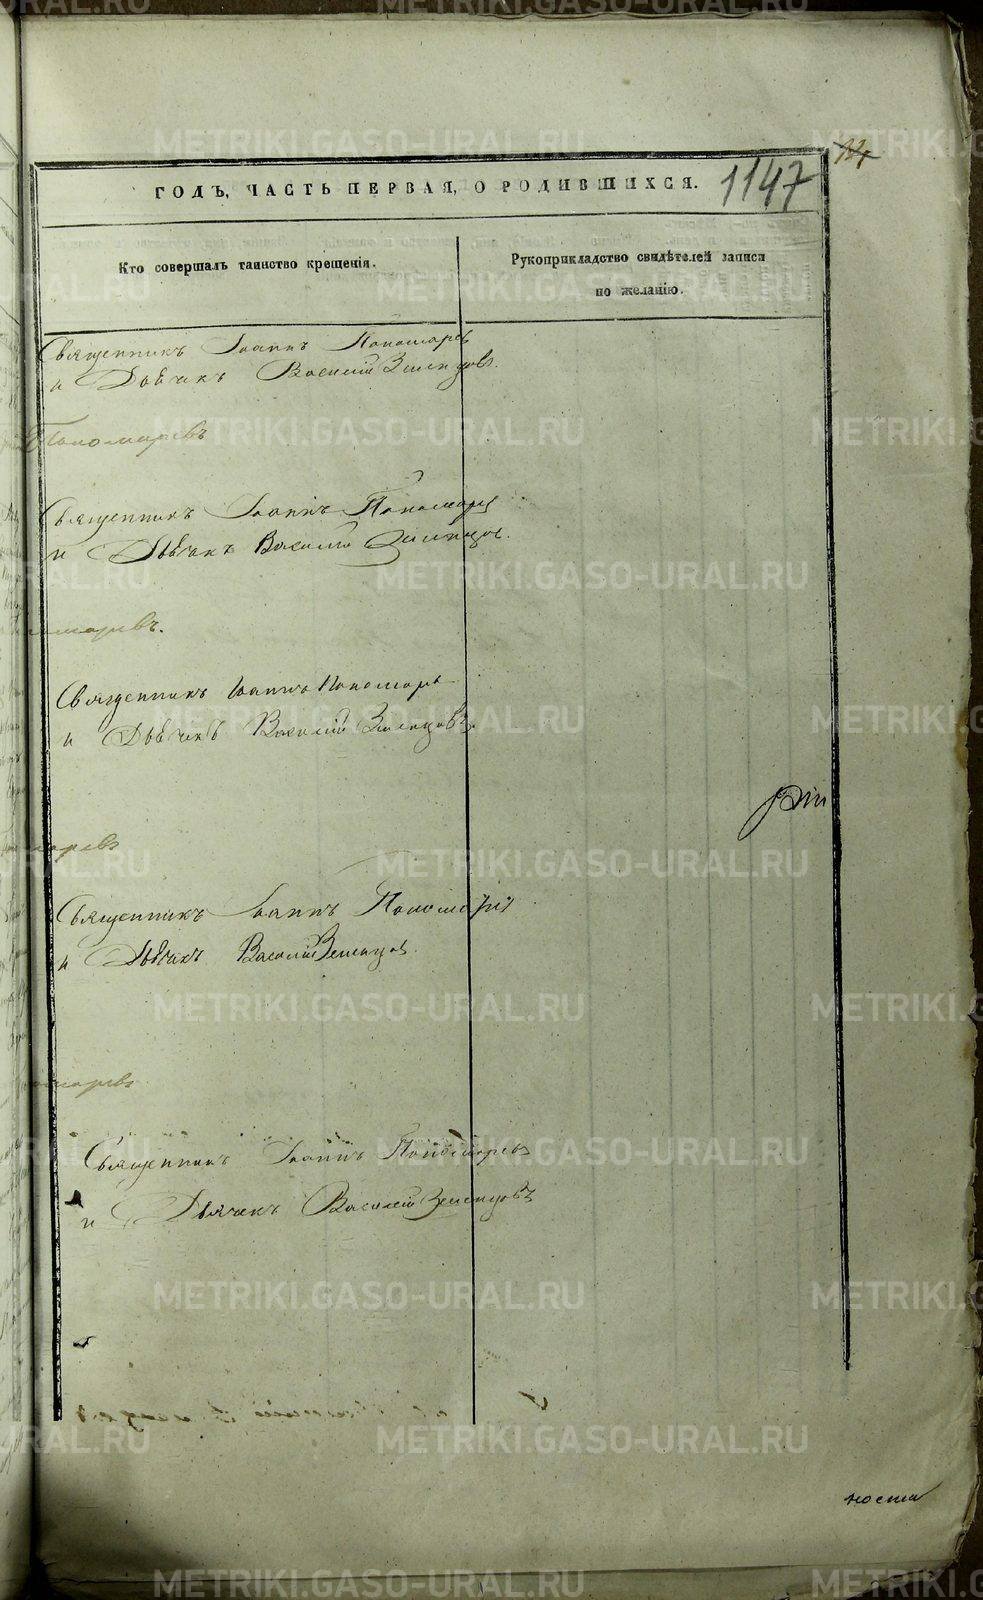 ГОДЪ, ЧАСТЬ ПЕРВАЯ, О РОДИВШИХСЯ. 1147
Кто совершалъ таинство крещенія.
Рукоприкладство свидѣтелей записи
по желанію.
Священникъ Іоаннъ Пономаревъ
и Дьячекъ Василій Зеленцовъ.
Пономаревъ
Священникъ Іоаннъ Пономарев
и Дьячекъ Василій Зеленцов.
маревъ.
Священникъ Іоаннъ Пономарь
и Дьячекъ Василій Зеленцовъ.
маревъ
Священникъ Іоаннъ Пономарев
и Дьячекъ Василій Зеленцов.
маревъ
Священникъ Іоаннъ Пономаревъ
и Дьячекъ Василій Зеленцовъ
METRIKI.GASO-URAL.RU